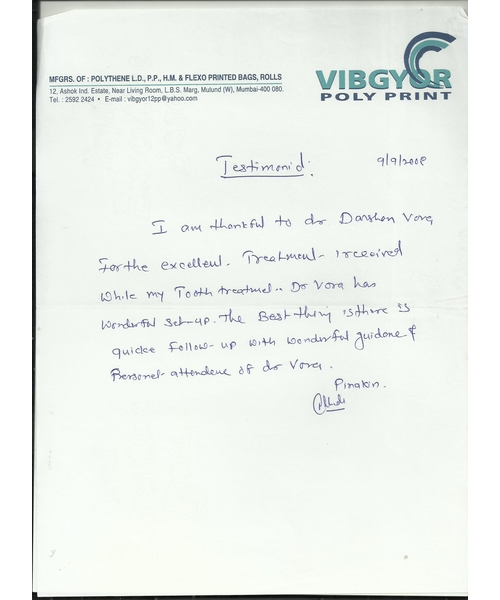 MFGRS. OF : POLYTHENE L.D., P.P., H.M. & FLEXO PRINTED BAGS, ROLLS
12, Ashok Ind. Estate, Near Living Room, L.B.S. Marg, Mulund (W), Mumbai-400 080.
Tel. : 2592 2424 • E-mail : vibgyor12pp@yahoo.com
VIBGYOR
POLY PRINT
Testimonid:
9/9/2008
I am thankful to dr Darshan Vora
For the excellent. Treatment- I received
While my Tooth treatmet.. Dr Vora has
Wonderful set-up. The Best thing is there is
quicke follow-up with wonderful guidane &
Personel attendene of dr Vora.
Pinakin.